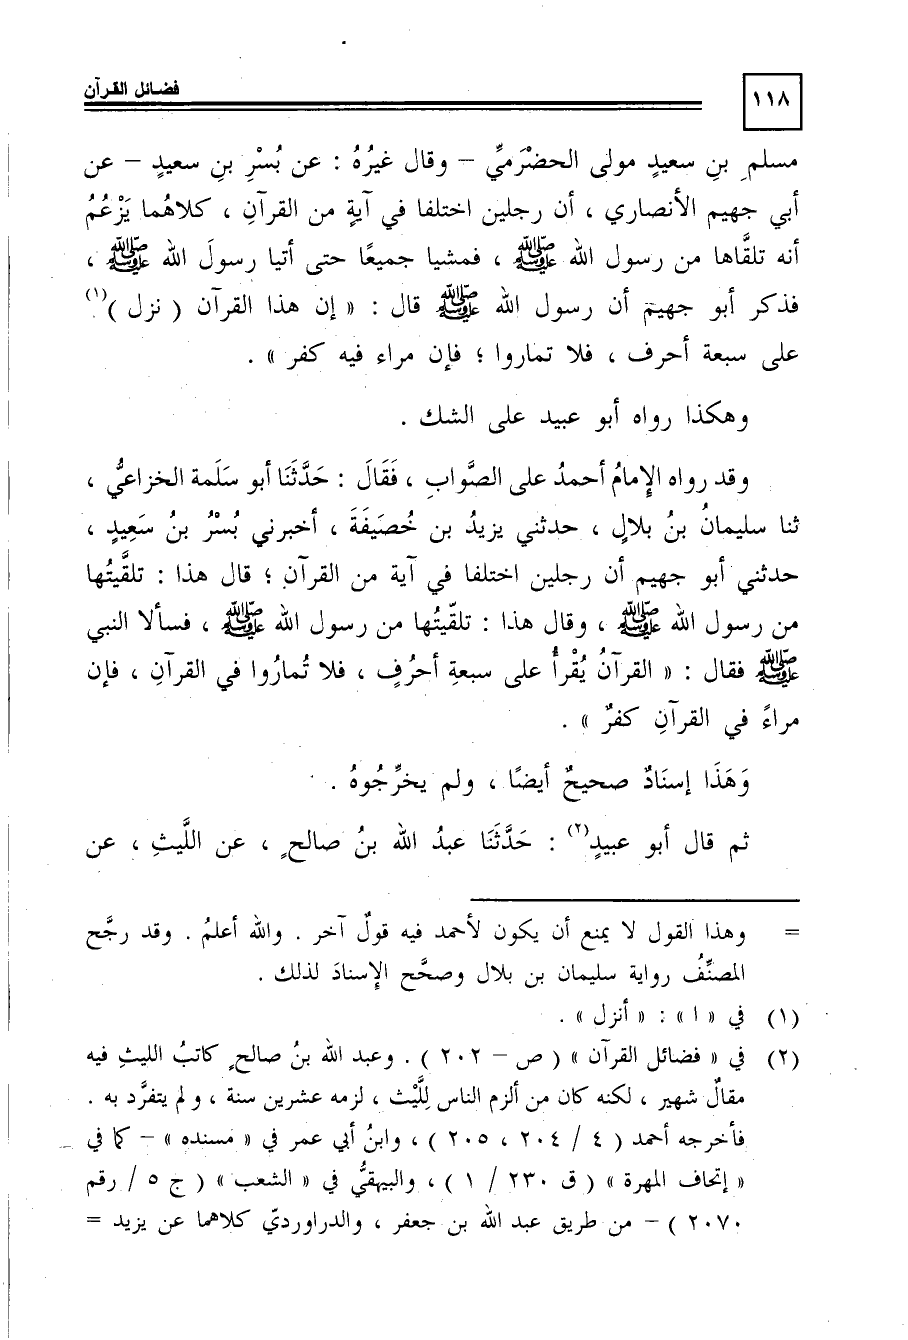 فضائل القرآن
١١٨
مسلم بنِ سعيدٍ مولى الحضْرَميِّ – وقال غيرُهُ : عن بُسْرِ بنِ سعيدٍ – عن
أبي جهيم الأنصاري ، أن رجلين اختلفا في آيةٍ من القرآنِ ، كلاهُما يَزْعُمُ
أنه تلقَّاها من رسول الله ﷺ ، فمشيا جميعًا حتى أتيا رسولَ الله ﷺ ،
فذكر أبو جهيم أن رسول الله ﷺ قال : « إن هذا القرآن ( نزل )(١)
على سبعة أحرف ، فلا تماروا ؛ فإن مراء فيه كفر » .
وهكذا رواه أبو عبيد على الشك .
وقد رواه الإمامُ أحمدُ على الصَّوابِ ، فَقَالَ : حَدَّثَنَا أبو سَلَمة الخزاعيُّ ،
ثنا سليمانُ بنُ بلالٍ ، حدثني يزيدُ بن خُصَيفَةَ ، أخبرني بُسْرُ بنُ سَعِيدٍ ،
حدثني أبو جهيم أن رجلين اختلفا في آية من القرآنِ ؛ قال هذا : تلقَّيتُها
من رسول الله ﷺ ، وقال هذا : تلقّيتُها من رسول الله ﷺ ، فسألا النبي
ﷺ فقال : « القرآنُ يُقْرأُ على سبعةِ أحرُفٍ ، فلا تُمارُوا في القرآنِ ، فإن
مراءً في القرآنِ كفرٌ » .
وَهَذَا إسنَادٌ صحيحٌ أيضًا ، ولم يخرِّجُوهُ .
ثم قال أبو عبيدٍ(٢) : حَدَّثَنَا عبدُ الله بنُ صالحٍ ، عن اللَّيثِ ، عن
= وهذا القول لا يمنع أن يكون لأحمد فيه قولٌ آخر . والله أعلمُ . وقد رجَّح
المصنِّفُ رواية سليمان بن بلال وصحَّح الإسنادَ لذلك .
(١) في « ا » : « أنزل » .
(٢) في « فضائل القرآن » ( ص – ٢٠٢ ) . وعبد الله بنُ صالحٍ كاتبُ الليثِ فيه
مقالٌ شهير ، لكنه كان من ألزم الناس لِلَّيْث ، لزمه عشرين سنة ، ولم يتفرَّد به .
فأخرجه أحمد ( ٤ / ٢٠٤ ، ٢٠٥ ) ، وابنُ أبي عمر في « مسنده » – كما في
« إتحاف المهرة » ( ق ٢٣٠ / ١ ) ، والبيهقيُّ في « الشعب » ( ج ٥ / رقم
٢٠٧٠ ) – من طريق عبد الله بن جعفر ، والدراورديّ كلاهما عن يزيد =